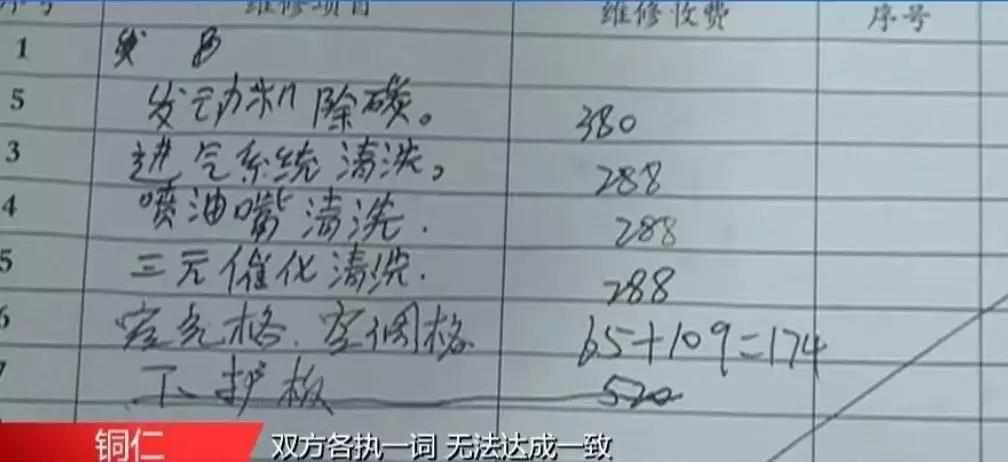 序号 维修项目 维修收费 序号
1
5 发动机除碳。 380
3 进气系统清洗。 288
4 喷油嘴清洗. 288
5 三元催化清洗. 288
6 空气格、空调格 65+109=174
7 下护板 520
铜仁 双方各执一词 无法达成一致